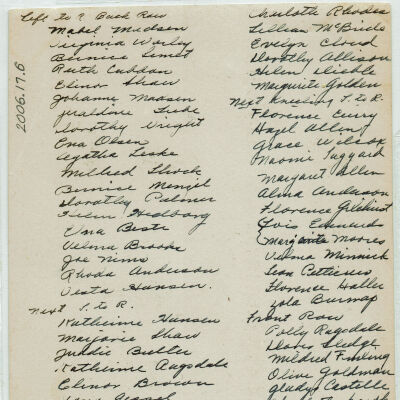 2006.17.6
Left to R Back Row
Mabel Madsen
Virginia
Bernice
Ruth
Elinor Shaw
Johanne Maasen
Geraldine
Dorothy Wright
Ena Olsen
Agatha Leske
Mildred Shrock
Bernice Mengel
Dorothy Palmer
Helen Hedborg
Una Beste
Velma Brooke
Joe Nims
Rhoda Anderson
Vesta Hansen.
Next L. to R.
Katherine Hansen
Marjorie Shaw
Butler
Katherine Ragsdale
Elinor Brown
Rhodes
Lillian McBride
Evelyn Cloud
Dorothy Allison
Helen
Marguerite Golden
Next Kneeling L. to R.
Florence Curry
Hazel Allen
Grace Wilcox
Naomi Taggard
Margaret Allen
Alma Anderson
Florence Gilchrist
Lois Edwards
Margarite Moores
Velma Minnick
Jean
Florence Haller
Lola Burnap
Front Row
Polly Ragsdale
Doris Sledge
Mildred
Olive Goldman
Gladys Costelle